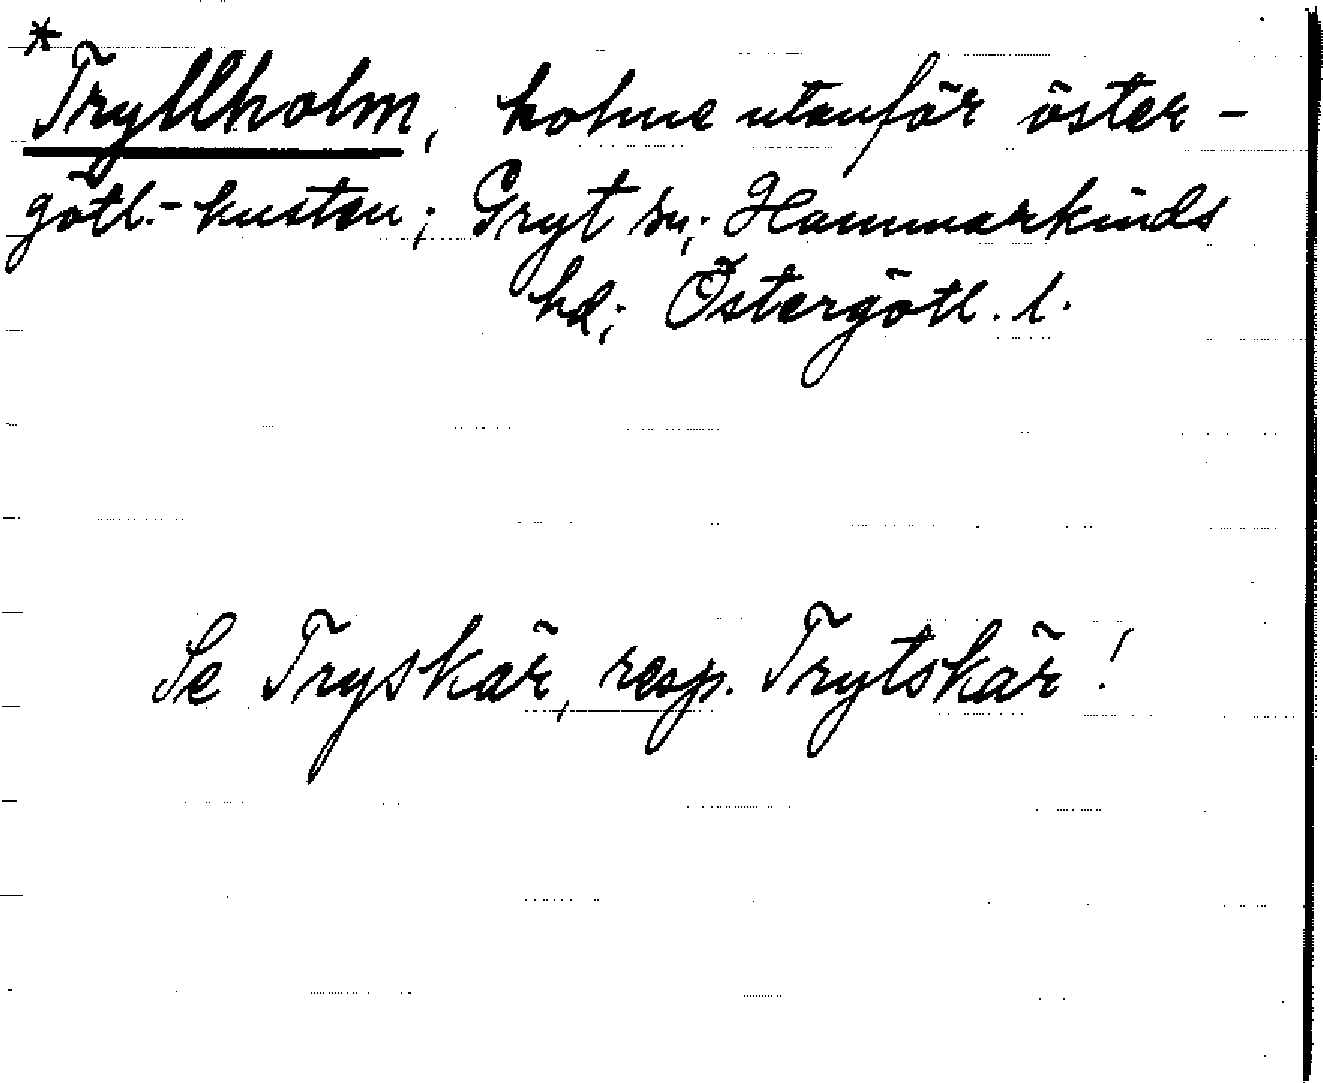 *Tryllholm, holme utanför öster-
götl.-kusten; Gryt sn; Hammarkinds
hd; Östergötl. l.
Se Tryskär, resp. Trytskär!